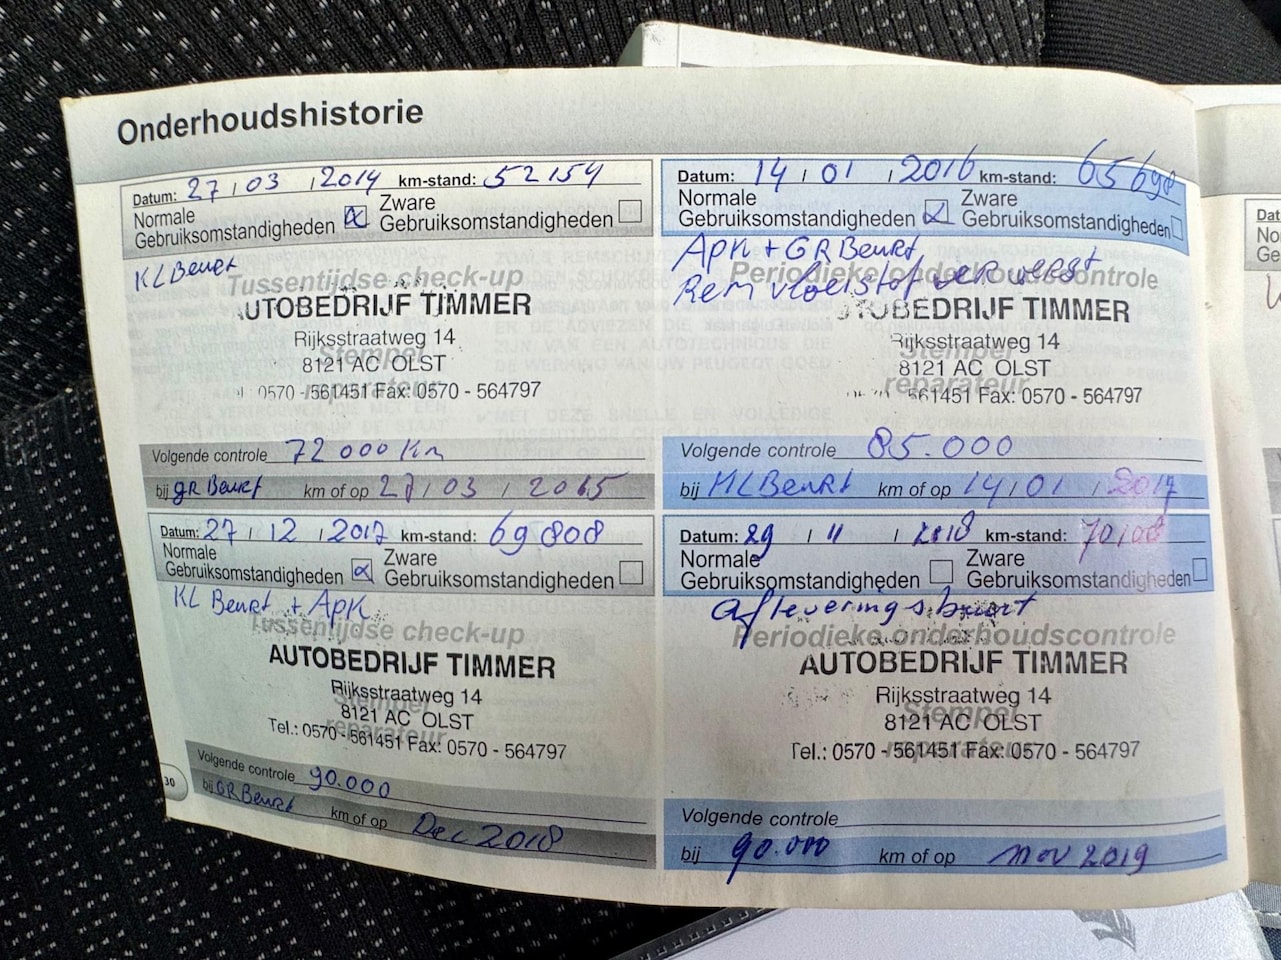 Onderhoudshistorie
Datum: 27 / 03 / 2014 km-stand: 52154
Normale Gebruiksomstandigheden Zware Gebruiksomstandigheden
KL Beurt
Tussentijdse check-up
UTOBEDRIJF TIMMER
Rijksstraatweg 14
Stempel
8121 AC OLST
reparateur
0570 - 561451 Fax: 0570 - 564797
Volgende controle 72000 Km
bij gR Beurt km of op 27 / 03 / 2015
Datum: 14 / 01 / 2016 km-stand: 65698
Normale Gebruiksomstandigheden Zware Gebruiksomstandigheden
APK + GR Beurt
Periodieke onderhoudscontrole
Rem vloeistof ververst
TOBEDRIJF TIMMER
Rijksstraatweg 14
Stempel
8121 AC OLST
reparateur
561451 Fax: 0570 - 564797
Volgende controle 85.000
bij KL Beurt km of op 14 / 01 / 2017
Datum: 27 / 12 / 2017 km-stand: 69808
Normale Gebruiksomstandigheden Zware Gebruiksomstandigheden
KL Beurt + APK
Tussentijdse check-up
AUTOBEDRIJF TIMMER
Rijksstraatweg 14
Stempel
8121 AC OLST
reparateur
Tel.: 0570 - 561451 Fax: 0570 - 564797
Volgende controle 90.000
bij GR Beurt km of op Dec 2018
30
Datum: 29 / 11 / 2018 km-stand: 70108
Normale Gebruiksomstandigheden Zware Gebruiksomstandigheden
afleveringsbeurt
Periodieke onderhoudscontrole
AUTOBEDRIJF TIMMER
Rijksstraatweg 14
Stempel
8121 AC OLST
reparateur
Tel.: 0570 - 561451 Fax: 0570 - 564797
Volgende controle
bij 90.000 km of op nov 2019